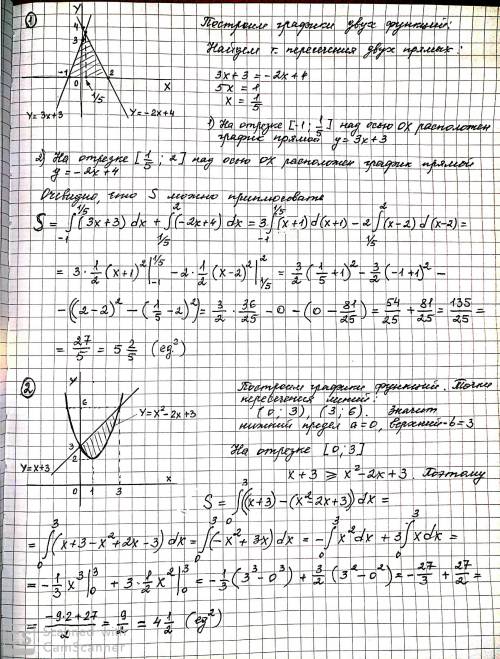 ①
y
4
3
-1 0 2 x
1/5
y=3x+3 y=-2x+4
Построим графики двух функций:
Найдем т. пересечения двух прямых:
3x+3=-2x+4
5x=1
x=1/5
1) На отрезке [-1; 1/5] над осью OX расположен
график прямой y=3x+3
2) На отрезке [1/5; 2] над осью OX расположен график прямой
y=-2x+4
Очевидно, что S можно приплюсовать
S = ∫_{-1}^{1/5} (3x+3) dx + ∫_{1/5}^{2} (-2x+4) dx = 3 ∫_{-1}^{1/5} (x+1) d(x+1) - 2 ∫_{1/5}^{2} (x-2) d(x-2) =
= 3·1/2 (x+1)² |_{-1}^{1/5} - 2·1/2 (x-2)² |_{1/5}^{2} = 3/2 (1/5+1)² - 3/2 (-1+1)² -
-((2-2)² - (1/5-2)²) = 3/2 · 36/25 - 0 - (0 - 81/25) = 54/25 + 81/25 = 135/25 =
= 27/5 = 5 2/5 (ед²)
②
y
6
3
2
0 1 3 x
y=x²-2x+3
y=x+3
Построим графики функций. Точки
пересечения линий:
(0; 3), (3; 6). Значит
нижний предел a=0, верхний - b=3
На отрезке [0; 3]
x+3 ⩾ x²-2x+3. Поэтому
S = ∫_{0}^{3} ((x+3)-(x²-2x+3)) dx =
= ∫_{0}^{3} (x+3-x²+2x-3) dx = ∫_{0}^{3} (-x²+3x) dx = -∫_{0}^{3} x² dx + 3 ∫_{0}^{3} x dx =
= -1/3 x³ |_{0}^{3} + 3·1/2 x² |_{0}^{3} = -1/3 (3³-0³) + 3/2 (3²-0²) = -27/3 + 27/2 =
= (-9·2+27)/2 = 9/2 = 4 1/2 (ед²)
CS
Scanned with
CamScanner